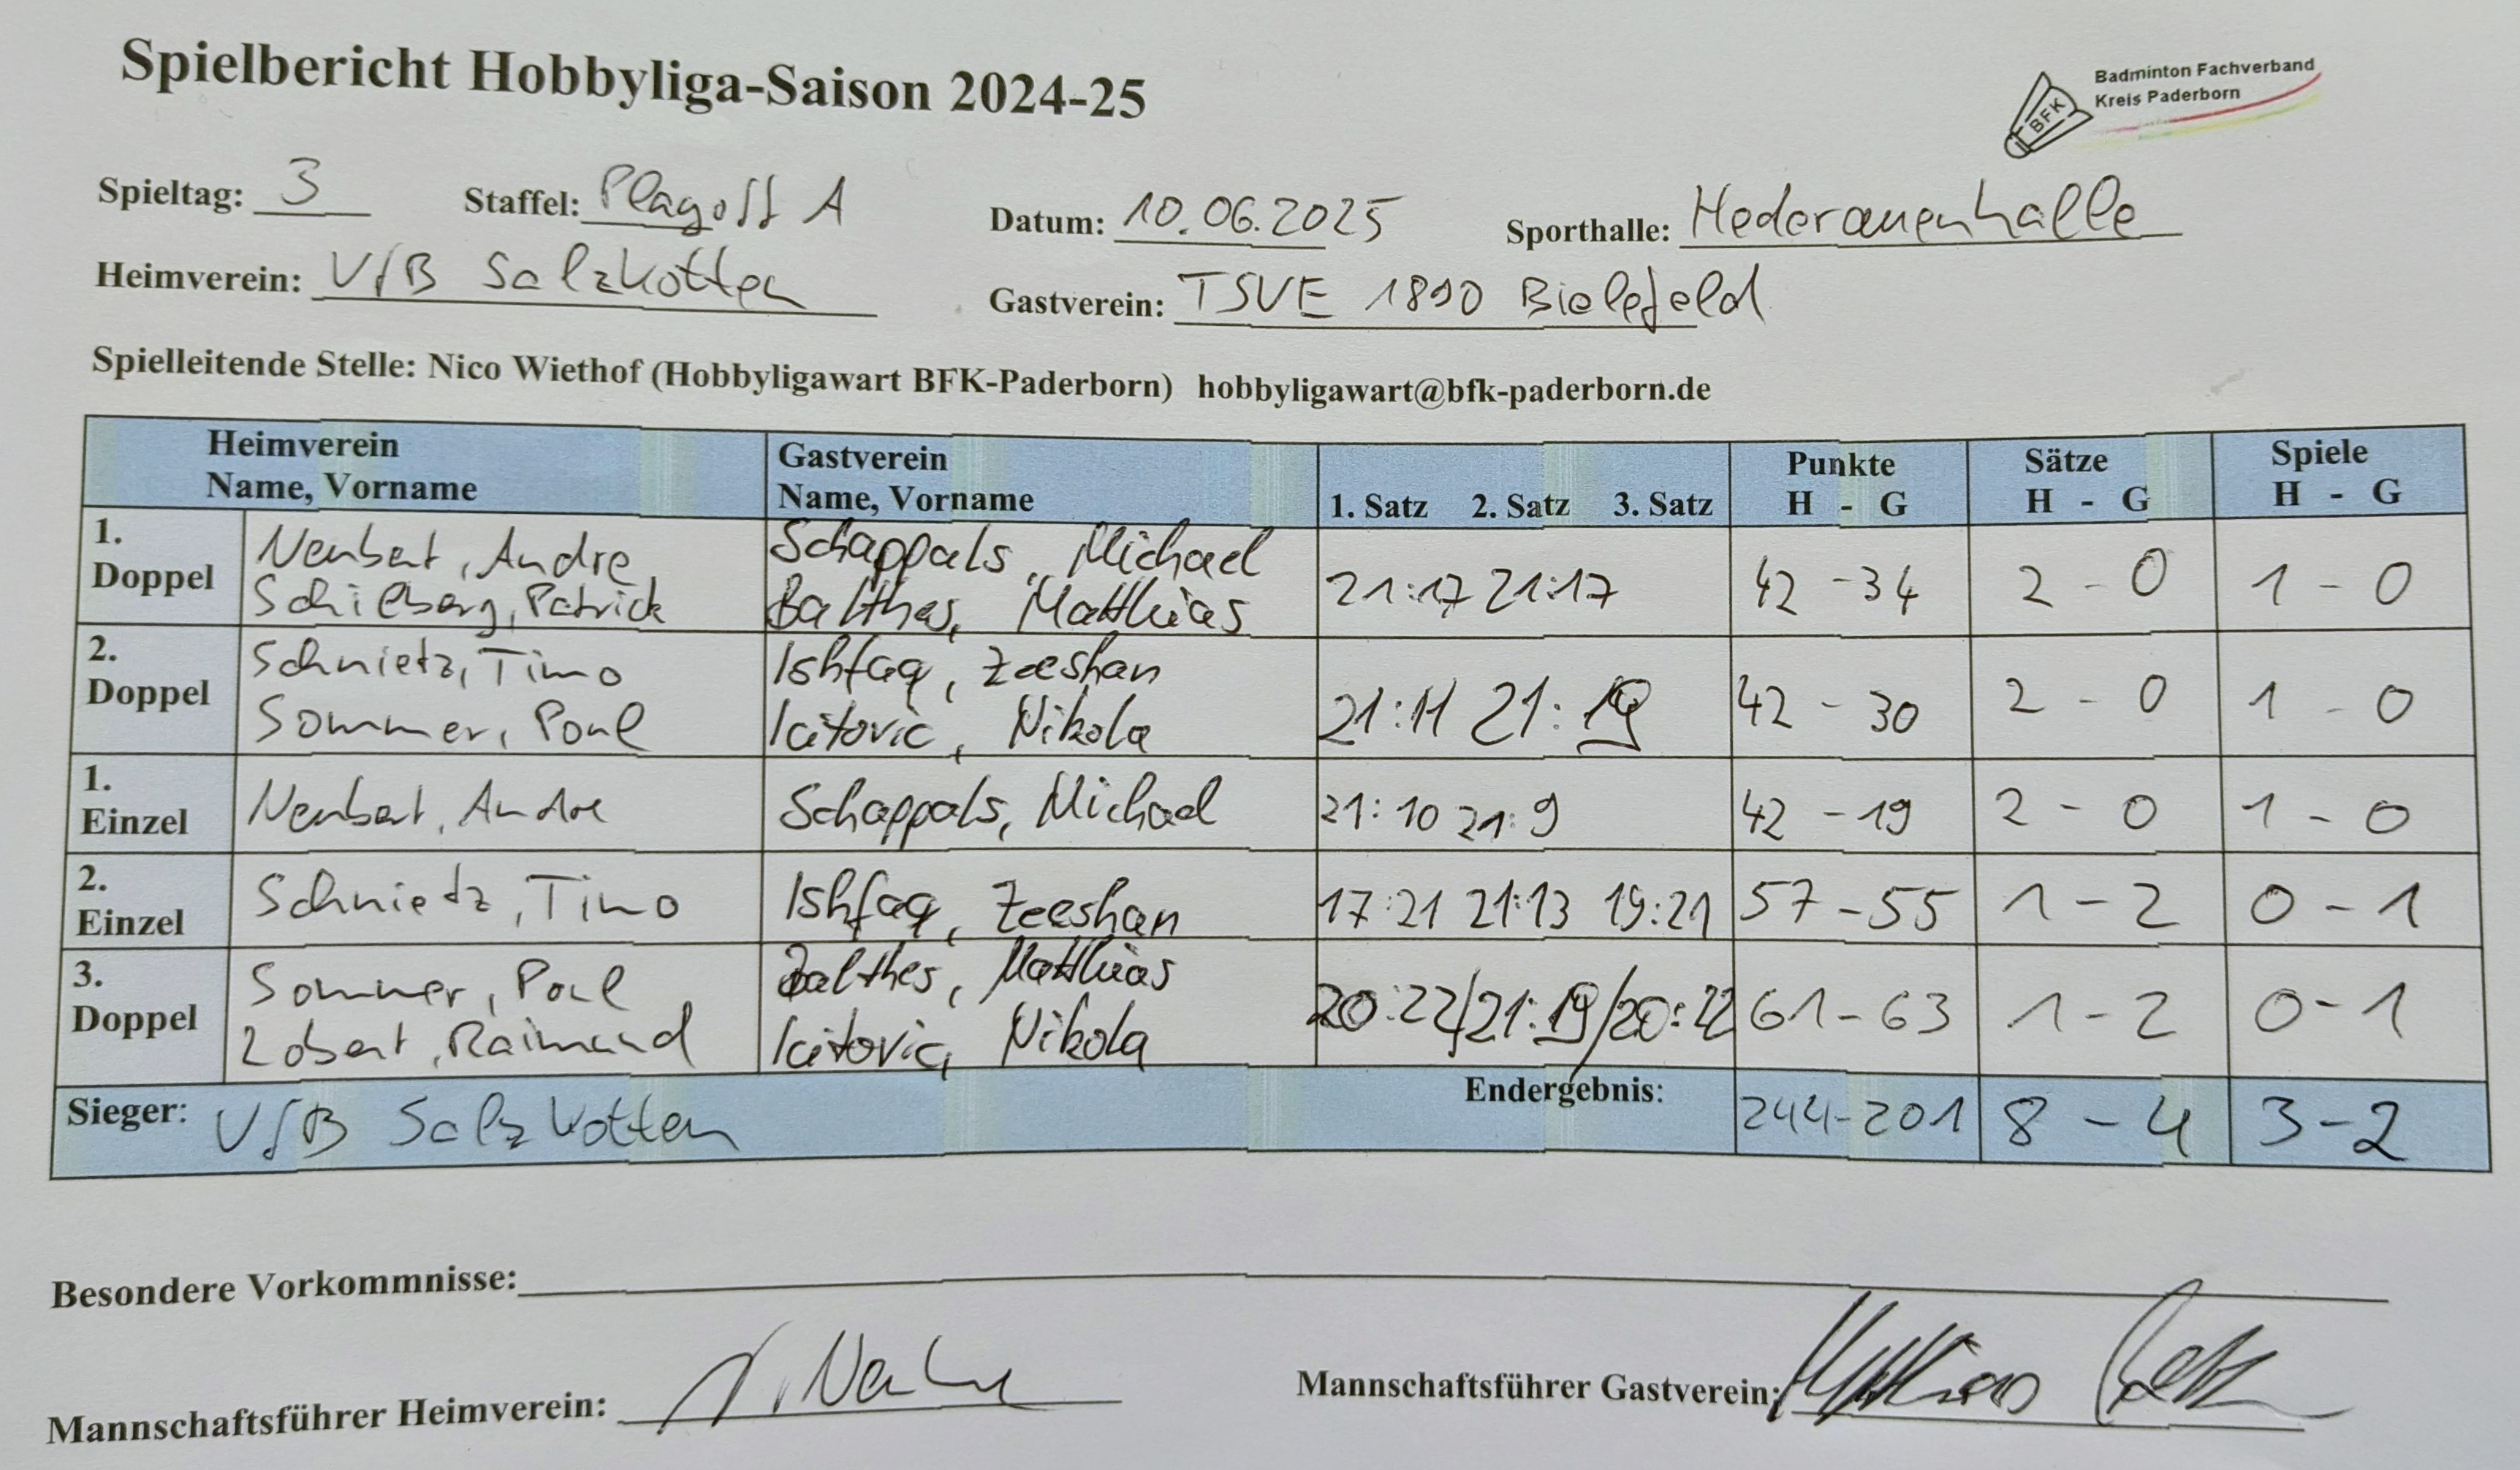 Spielbericht Hobbyliga-Saison 2024-25
Badminton Fachverband
Kreis Paderborn
BFK
Spieltag: 3 Staffel: Playoff A Datum: 10.06.2025 Sporthalle: Hederauenhalle
Heimverein: VfB Salzkotten Gastverein: TSVE 1890 Bielefeld
Spielleitende Stelle: Nico Wiethof (Hobbyligawart BFK-Paderborn) hobbyligawart@bfk-paderborn.de
Heimverein Gastverein Punkte Sätze Spiele
Name, Vorname Name, Vorname 1. Satz 2. Satz 3. Satz H - G H - G H - G
1. Neubert, Andre Schappals, Michael
Doppel Schielberg, Patrick Balthes, Matthias 21:17 21:17 42 - 34 2 - 0 1 - 0
2. Schnietz, Timo Ishfaq, Zeeshan
Doppel Sommer, Paul Icitovic, Nikola 21:11 21:19 42 - 30 2 - 0 1 - 0
1.
Einzel Neubert, Andre Schappals, Michael 21:10 21:9 42 - 19 2 - 0 1 - 0
2.
Einzel Schnietz, Timo Ishfaq, Zeeshan 17:21 21:13 19:21 57 - 55 1 - 2 0 - 1
3. Sommer, Paul Balthes, Matthias
Doppel Lobert, Raimund Icitovic, Nikola 20:22/21:19/20:22 61 - 63 1 - 2 0 - 1
Sieger: VfB Salzkotten Endergebnis: 244-201 8 - 4 3 - 2
Besondere Vorkommnisse:
Mannschaftsführer Heimverein: Mannschaftsführer Gastverein: